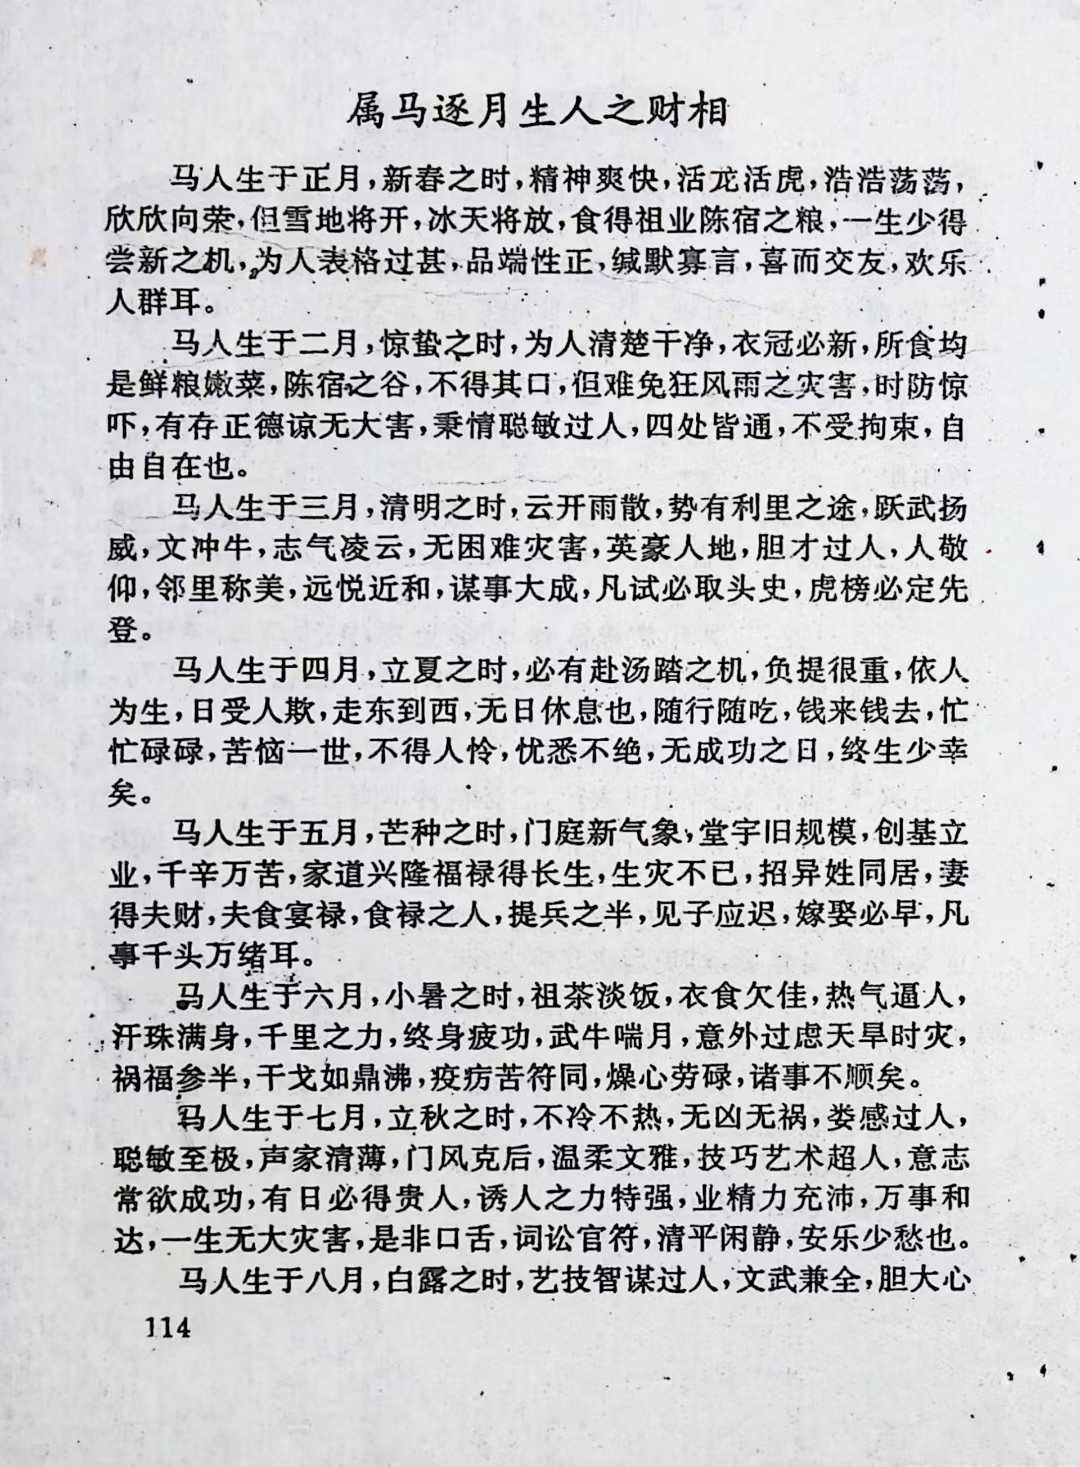 属马逐月生人之财相
马人生于正月,新春之时,精神爽快,活龙活虎,浩浩荡荡,
欣欣向荣,但雪地将开,冰天将放,食得祖业陈宿之粮,一生少得
尝新之机,为人表格过甚,品端性正,缄默寡言,喜而交友,欢乐
人群耳。
马人生于二月,惊蛰之时,为人清楚干净,衣冠必新,所食均
是鲜粮嫩菜,陈宿之谷,不得其口,但难免狂风雨之灾害,时防惊
吓,有存正德谅无大害,秉情聪敏过人,四处皆通,不受拘束,自
由自在也。
马人生于三月,清明之时,云开雨散,势有利里之途,跃武扬
威,文冲牛,志气凌云,无困难灾害,英豪人地,胆才过人,人敬
仰,邻里称美,远悦近和,谋事大成,凡试必取头史,虎榜必定先
登。
马人生于四月,立夏之时,必有赴汤踏之机,负提很重,依人
为生,日受人欺,走东到西,无日休息也,随行随吃,钱来钱去,忙
忙碌碌,苦恼一世,不得人怜,忧悉不绝,无成功之日,终生少幸
矣。
马人生于五月,芒种之时,门庭新气象,堂宇旧规模,创基立
业,千辛万苦,家道兴隆福禄得长生,生灾不已,招异姓同居,妻
得夫财,夫食宴禄,食禄之人,提兵之半,见子应迟,嫁娶必早,凡
事千头万绪耳。
马人生于六月,小暑之时,祖茶淡饭,衣食欠佳,热气逼人,
汗珠满身,千里之力,终身疲功,武牛喘月,意外过虑天旱时灾,
祸福参半,干戈如鼎沸,疫疠苦符同,燥心劳碌,诸事不顺矣。
马人生于七月,立秋之时,不冷不热,无凶无祸,娄感过人,
聪敏至极,声家清薄,门风克后,温柔文雅,技巧艺术超人,意志
常欲成功,有日必得贵人,诱人之力特强,业精力充沛,万事和
达,一生无大灾害,是非口舌,词讼官符,清平闲静,安乐少愁也。
马人生于八月,白露之时,艺技智谋过人,文武兼全,胆大心
114